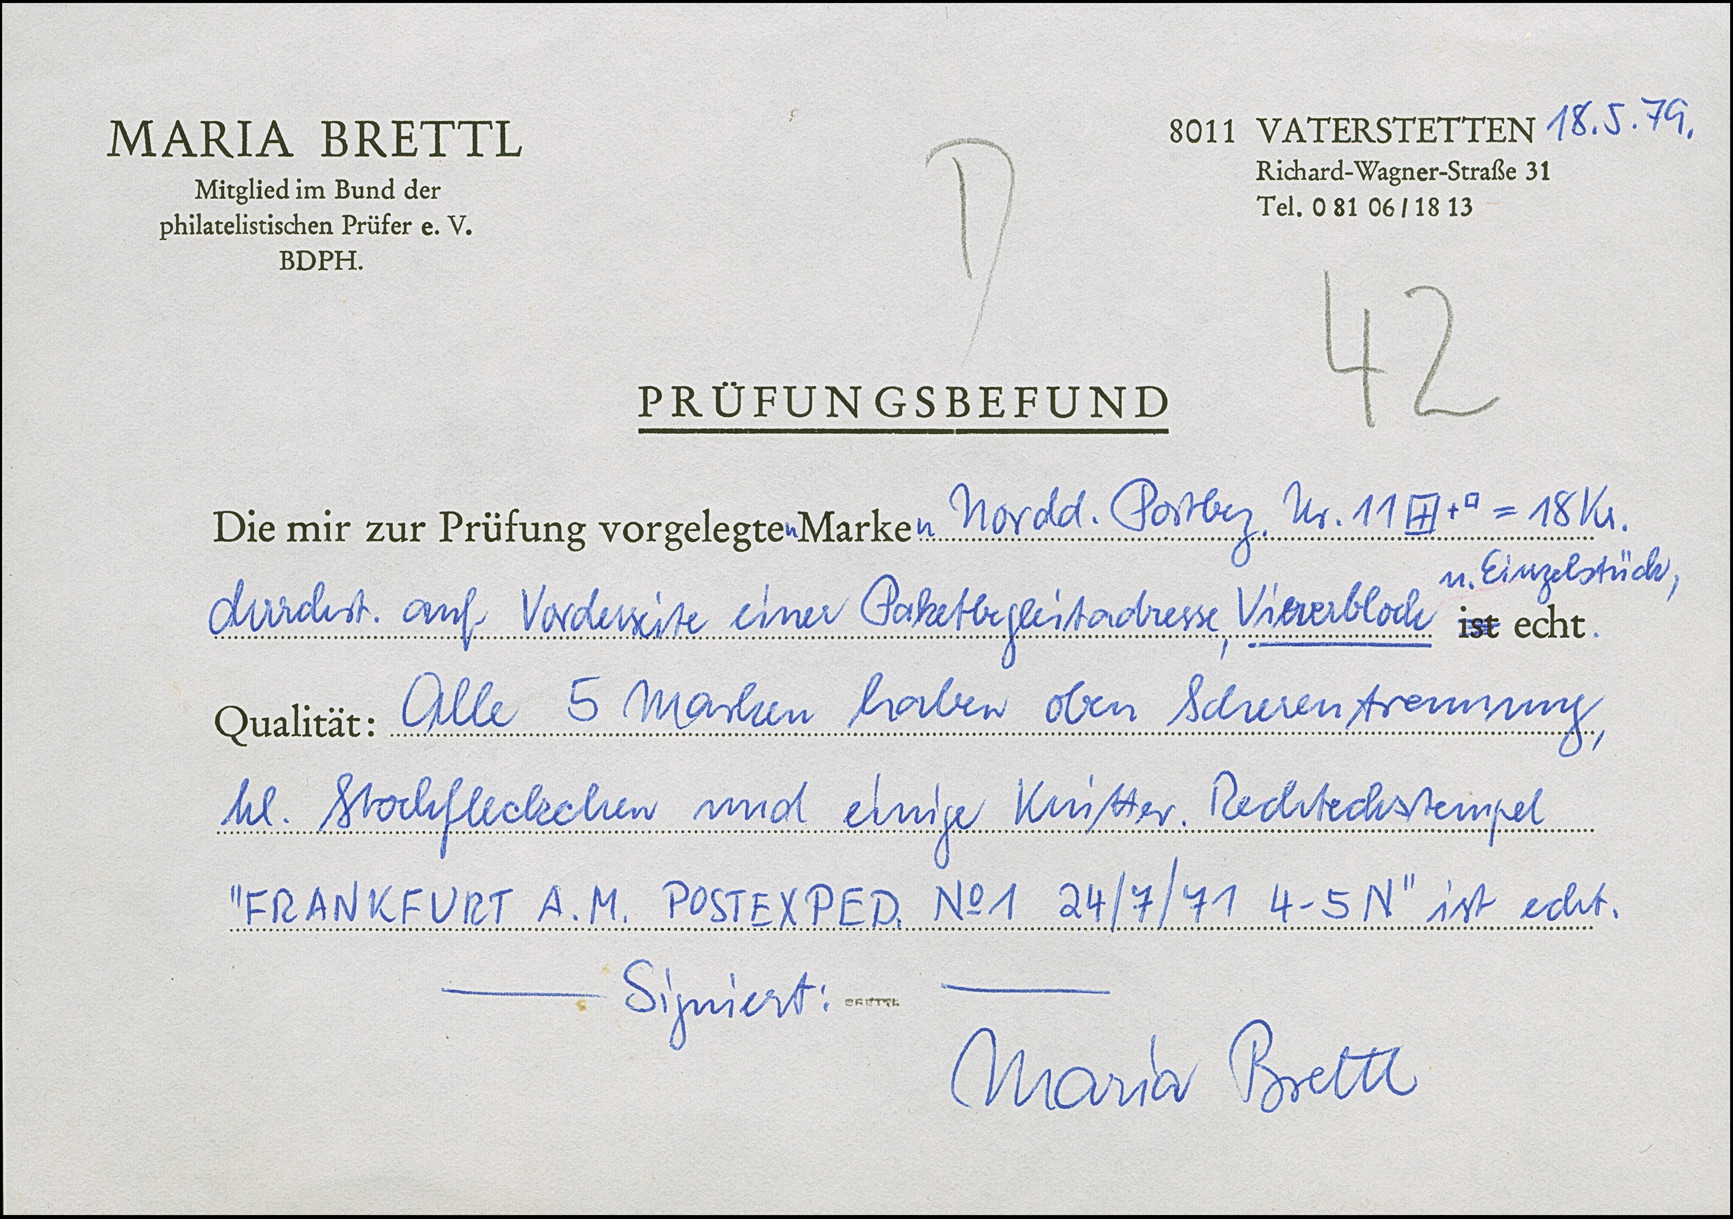 MARIA BRETTL
Mitglied im Bund der
philatelistischen Prüfer e. V.
BDPH.
8011 VATERSTETTEN 18.5.79.
Richard-Wagner-Straße 31
Tel. 0 81 06 / 18 13
D
42
PRÜFUNGSBEFUND
Die mir zur Prüfung vorgelegten Marken Nordd. Postbez. Nr. 11 ⊞ + □ = 18 Kr.
durchst. auf Vorderseite einer Paketbegleitadresse, Viererblock u. Einzelstück, ist echt.
Qualität: Alle 5 Marken haben oben Scherentrennung,
kl. Stockfleckchen und einige Knitter. Rechteckstempel
"FRANKFURT A.M. POSTEXPED. Nº1 24/7/71 4-5 N" ist echt.
Signiert: BRETTL
Maria Brettl